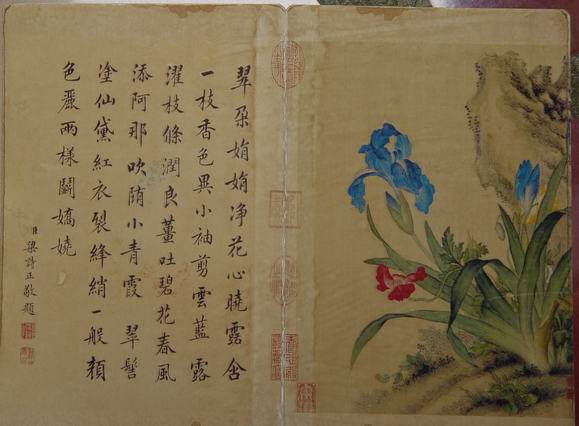 翠朵娟娟净花心曉露含
一枝香色異小袖剪雲藍 露
濯枝條潤良薑吐碧花春風
添阿那吹随小青霞 翠髻
塗仙黛紅衣裂絳綃一般顏
色麗兩樣鬭嬌嬈
臣梁詩正敬題